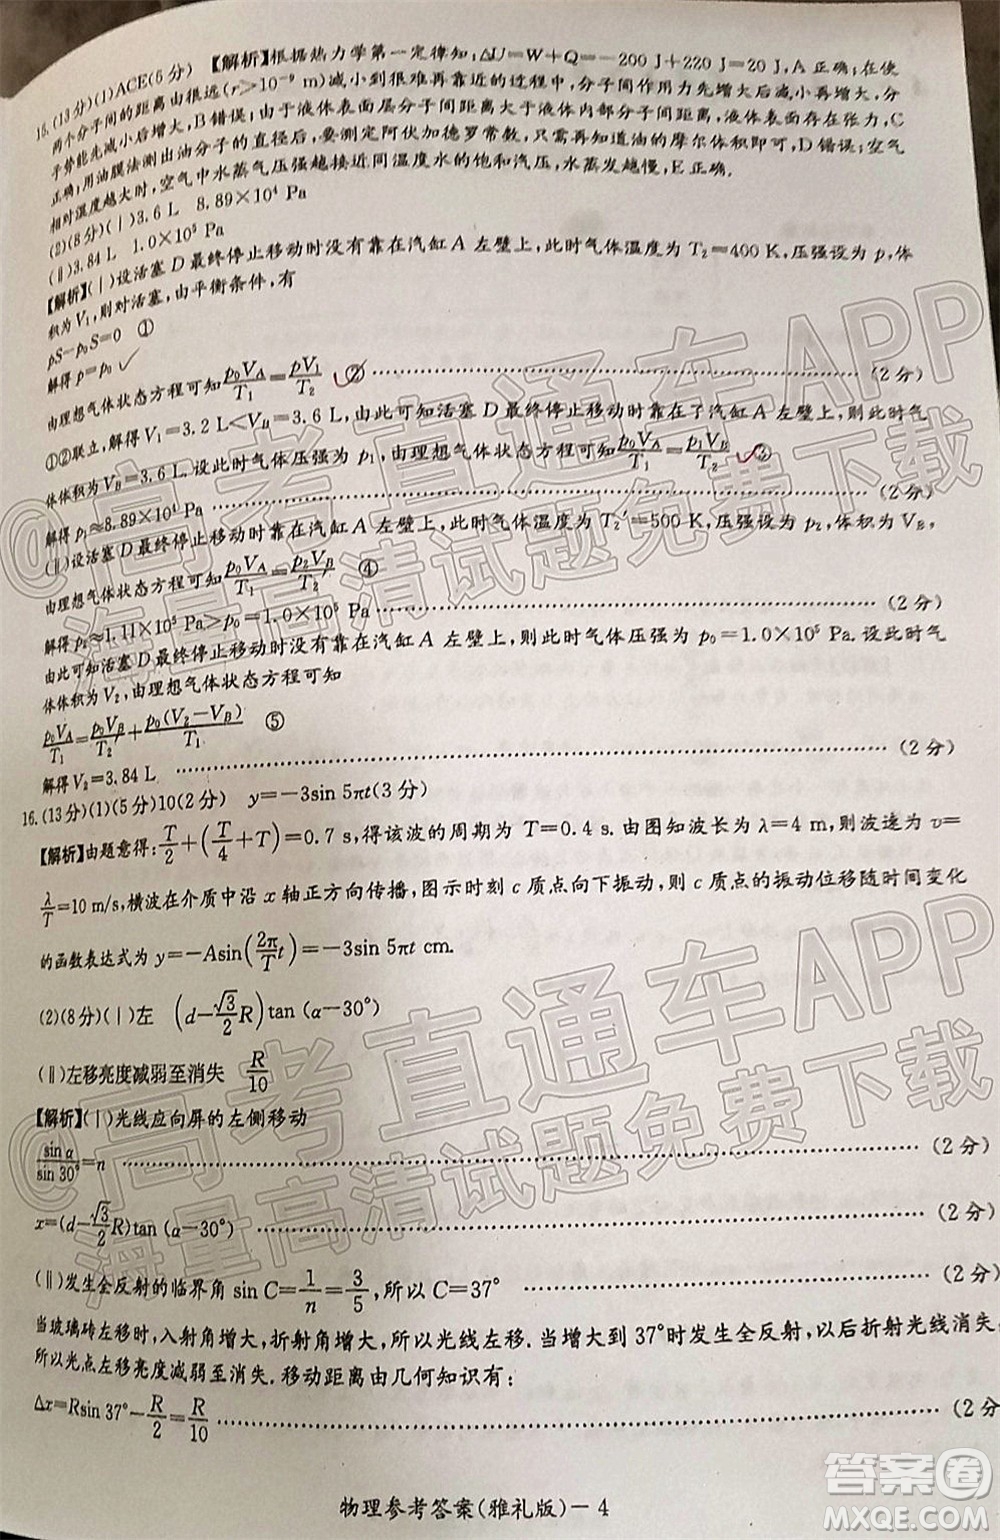 15.(13分)(1)ACE(5分) 【解析】根据热力学第一定律知:ΔU=W+Q=-200 J+220 J=20 J,A 正确;在使
两个分子间的距离由很远(r>10⁻⁹ m)减小到很难再靠近的过程中,分子间作用力先增大后减小再增大,分
子势能先减小后增大,B 错误;由于液体表面层分子间距离大于液体内部分子间距离,液体表面存在张力,C
正确;用油膜法测出油分子的直径后,要测定阿伏加德罗常数,只需再知道油的摩尔体积即可,D 错误;空气
相对湿度越大时,空气中水蒸气压强越接近同温度水的饱和汽压,水蒸发越慢,E 正确.
(2)(8分)(Ⅰ)3.6 L 8.89×10⁴ Pa
(Ⅱ)3.84 L 1.0×10⁵ Pa
【解析】(Ⅰ)设活塞 D 最终停止移动时没有靠在汽缸 A 左壁上,此时气体温度为 T₂=400 K,压强设为 p,体
积为 V₁,则对活塞,由平衡条件,有
pS-p₀S=0 ①
解得 p=p₀
由理想气体状态方程可知 p₀V_A/T₁=pV₁/T₂ ② (2分)
①②联立,解得 V₁=3.2 L<V_B=3.6 L,由此可知活塞 D 最终停止移动时靠在了汽缸 A 左壁上,则此时气
体体积为 V_B=3.6 L.设此时气体压强为 p₁,由理想气体状态方程可知 p₀V_A/T₁=p₁V_B/T₂ ③
解得 p₁≈8.89×10⁴ Pa (2分)
(Ⅱ)设活塞 D 最终停止移动时靠在汽缸 A 左壁上,此时气体温度为 T₂′=500 K,压强设为 p₂,体积为 V_B,
由理想气体状态方程可知 p₀V_A/T₁=p₂V_B/T₂′ ④
解得 p₂≈1.11×10⁵ Pa>p₀=1.0×10⁵ Pa (2分)
由此可知活塞 D 最终停止移动时没有靠在汽缸 A 左壁上,所以此时气体压强为 p₀=1.0×10⁵ Pa.设此时气
体体积为 V₂,由理想气体状态方程可知
p₀V_A/T₁=p₀V_B/T₂′+p₀(V₂-V_B)/T₂′ ⑤
解得 V₂=3.84 L (2分)
16.(13分)(1)(5分)10(2分) y=-3sin 5πt(3分)
【解析】由题意得:T/2+(T/4+T)=0.7 s,得该波的周期为 T=0.4 s.由图知波长为 λ=4 m,则波速为 v=
λ/T=10 m/s,横波在介质中沿 x 轴正方向传播,图示时刻 c 质点向下振动,则 c 质点的振动位移随时间变化
的函数表达式为 y=-Asin(2π/T t)=-3sin 5πt cm.
(2)(8分)(Ⅰ)左 (d-√3/2 R)tan (α-30°)
(Ⅱ)左移亮度减弱至消失 R/10
【解析】(Ⅰ)光线应向屏的左侧移动
sin α/sin 30°=n (2分)
x=(d-√3/2 R)tan (α-30°) (2分)
(Ⅱ)发生全反射的临界角 sin C=1/n=3/5,所以 C=37° (2分)
当玻璃砖左移时,入射角增大,折射角增大,所以光线左移.当增大到 37°时发生全反射,以后折射光线消失,
所以光点左移亮度减弱至消失.移动距离由几何知识有:
Δx=Rsin 37°-R/2=R/10 (2分
物理参考答案(雅礼版)-4
@高考直通车APP
海量高清试题免费下载
@高考直通车APP
海量高清试题免费下载
答案圈
MXQE.COM